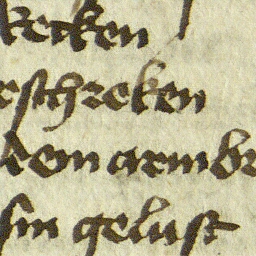 kecken
erschreken
dem armbr
sin gelust